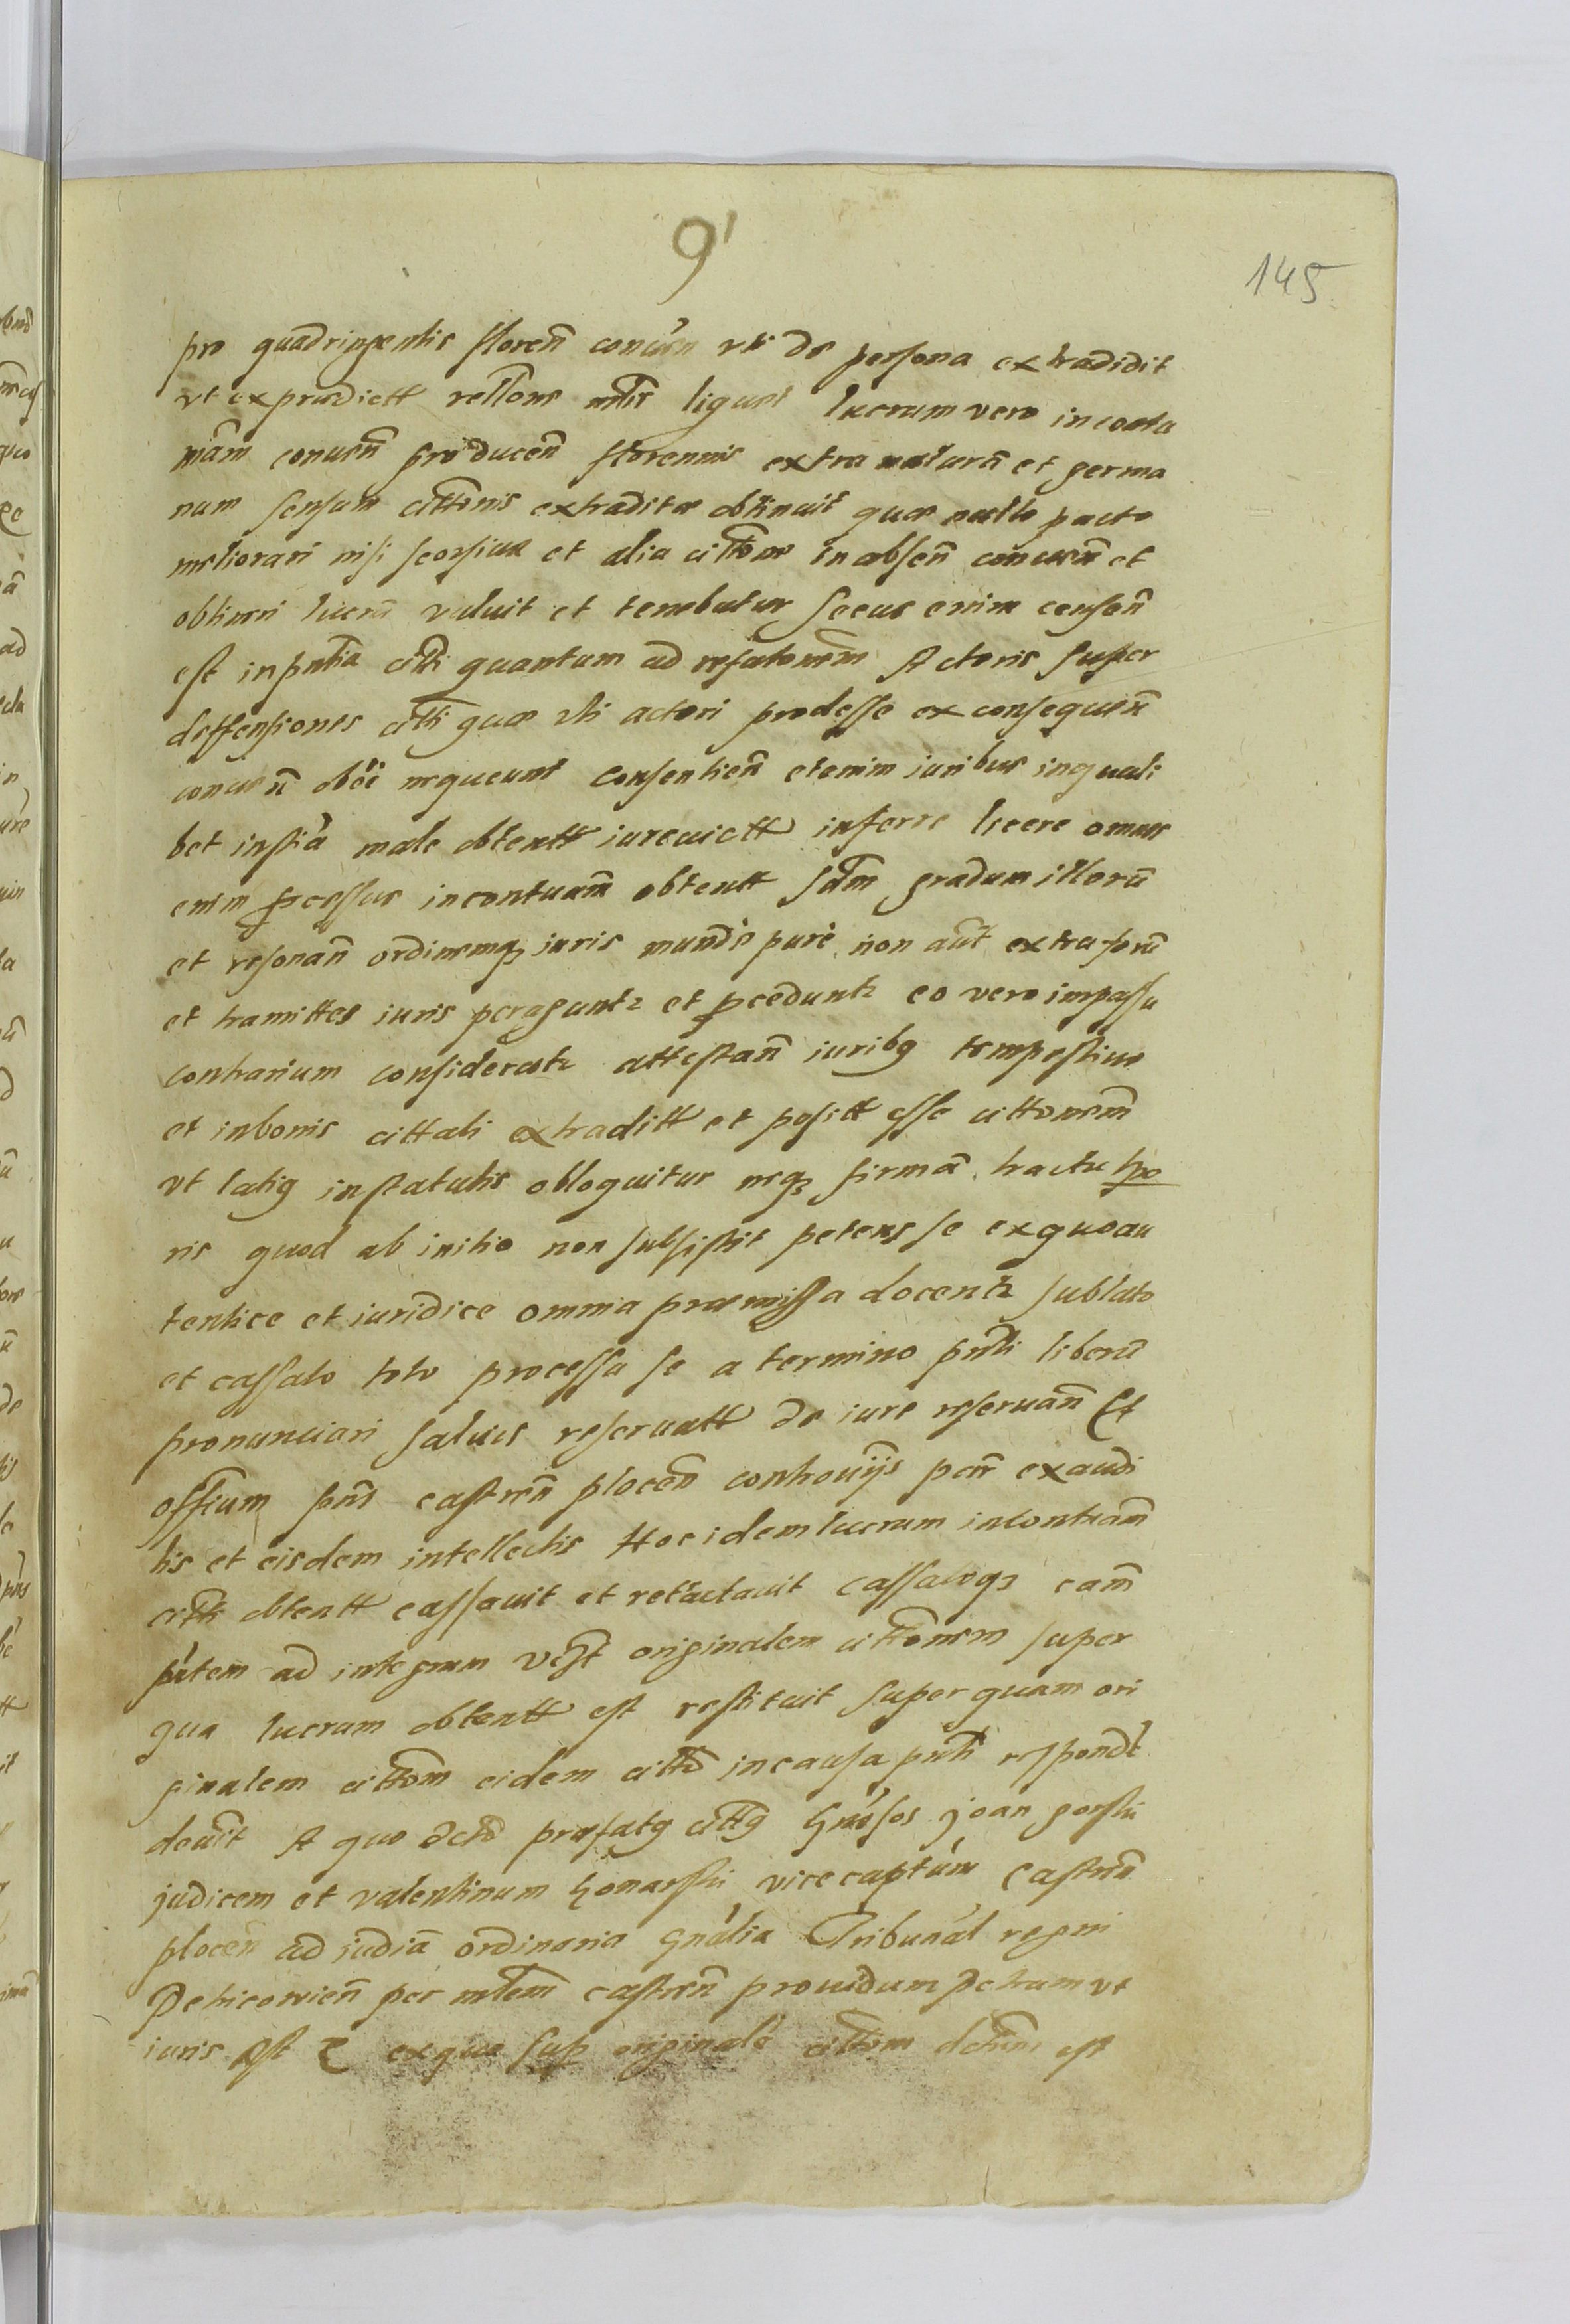 9
145
pro quadringentis floren̄ conuen̄ vti de persona extradidit
vt ex prædictt rel̃lone ministerialis liquet lucrum vero in contu
mãm conuen̄ pro ducen̄ florennis extra naturā et germa
num sensum citt̃onis extraditæ obtinuit quæ nullo pacto
meliorari nisi seorsiua et alia citt̃one in absen̄ conuen̄ et
obtineri lucrū valuit et tenebatur secus enim censen̄
est in pn̄tia citti quantum ad Actoris super
deffensiones citti quæ vti actori prodesse ex consequen̄
conuen̄ neque­unt consentien̄ etenim iuribus in quali
bet instã male obtentt iureuictt inferre licere omnes
enim ꝓcessus in contuam̃ obtentt sdm̃ gradum illorū
et resonan̄ ordinemqꝫ iuris munde pure non aut̃ extra forū
et tramittes iuris peraguntr et ꝓceduntr eo vero impassu
contrarium consideratr attestan̄ iuribꝰ tempestiue
et in bonis cittati extraditt et positt esse citt̃onem̃
vt latiꝰ in statutis obloquitur neqꝫ firmã tractu tꝑo
ris quod ab initio non subsistit petens se ex quo au
tentice et iuridice omnia præmissa docentr sublato
et cassato toto processu se a termino pn̄ti liberū
pronunciari saluis reseruatt de iure reseruan̄ Et
offium pn̄s castren̄ plocen̄ controuijs par̄ exaudi
tis et eisdem intellectis Hoc idem lucrum in contuam̃
citti obtentt cassauit et retractauit cassatoqꝫ eam̃
ptem ad integrum originalem citt̃onem super
qua lucrum obtentt est restituit super quam ori
ginalem citt̃om eidem citto in causa pn̄ti respond̃e
deuit A quo dcto præfatꝰ cittꝰ Gn̄osos joan gorski
judicem et valentinum Gonarski vice captum̃ Castren̄
plocen̄ ad iudiã ordinaria Gn̄alia Tribunal regni
Petricouien̄ per mlem̃ castren̄ prouidum Petrum vt
iuris est ex quo sup̱ originale citt̃om est